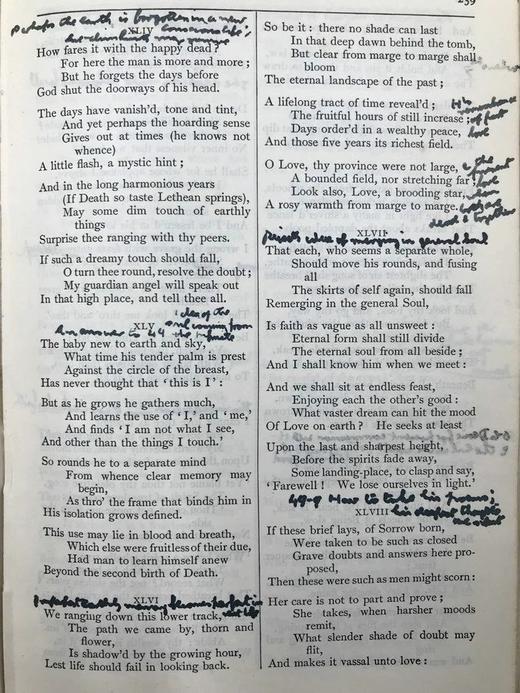 239
Perhaps the earth is forgotten in a new
XLIV
How fares it with the happy dead?
For here the man is more and more;
But he forgets the days before
God shut the doorways of his head.
The days have vanish'd, tone and tint,
And yet perhaps the hoarding sense
Gives out at times (he knows not
whence)
A little flash, a mystic hint;
And in the long harmonious years
(If Death so taste Lethean springs),
May some dim touch of earthly
things
Surprise thee ranging with thy peers.
If such a dreamy touch should fall,
O turn thee round, resolve the doubt;
My guardian angel will speak out
In that high place, and tell thee all.
idea of the
XLV
soul coming from
An answer to 44 the infinite
The baby new to earth and sky,
What time his tender palm is prest
Against the circle of the breast,
Has never thought that 'this is I':
But as he grows he gathers much,
And learns the use of 'I,' and 'me,'
And finds 'I am not what I see,
And other than the things I touch.'
So rounds he to a separate mind
From whence clear memory may
begin,
As thro' the frame that binds him in
His isolation grows defined.
This use may lie in blood and breath,
Which else were fruitless of their due,
Had man to learn himself anew
Beyond the second birth of Death.
XLVI
Imperfect earthly memory becomes perfect in
next life
We ranging down this lower track,
The path we came by, thorn and
flower,
Is shadow'd by the growing hour,
Lest life should fail in looking back.
So be it: there no shade can last
In that deep dawn behind the tomb,
But clear from marge to marge shall
bloom
The eternal landscape of the past;
A lifelong tract of time reveal'd;
The fruitful hours of still increase;
Days order'd in a wealthy peace,
And those five years its richest field.
O Love, thy province were not large,
A bounded field, nor stretching far;
Look also, Love, a brooding star,
A rosy warmth from marge to marge.
XLVII
Rejects idea of merging in general soul
That each, who seems a separate whole,
Should move his rounds, and fusing
all
The skirts of self again, should fall
Remerging in the general Soul,
Is faith as vague as all unsweet:
Eternal form shall still divide
The eternal soul from all beside;
And I shall know him when we meet:
And we shall sit at endless feast,
Enjoying each the other's good:
What vaster dream can hit the mood
Of Love on earth? He seeks at least
Upon the last and sharpest height,
Before the spirits fade away,
Some landing-place, to clasp and say,
'Farewell! We lose ourselves in light.'
48-9 How to take his poems;
XLVIII
his deepest thoughts
are silent
If these brief lays, of Sorrow born,
Were taken to be such as closed
Grave doubts and answers here pro-
posed,
Then these were such as men might scorn:
Her care is not to part and prove;
She takes, when harsher moods
remit,
What slender shade of doubt may
flit,
And makes it vassal unto love: